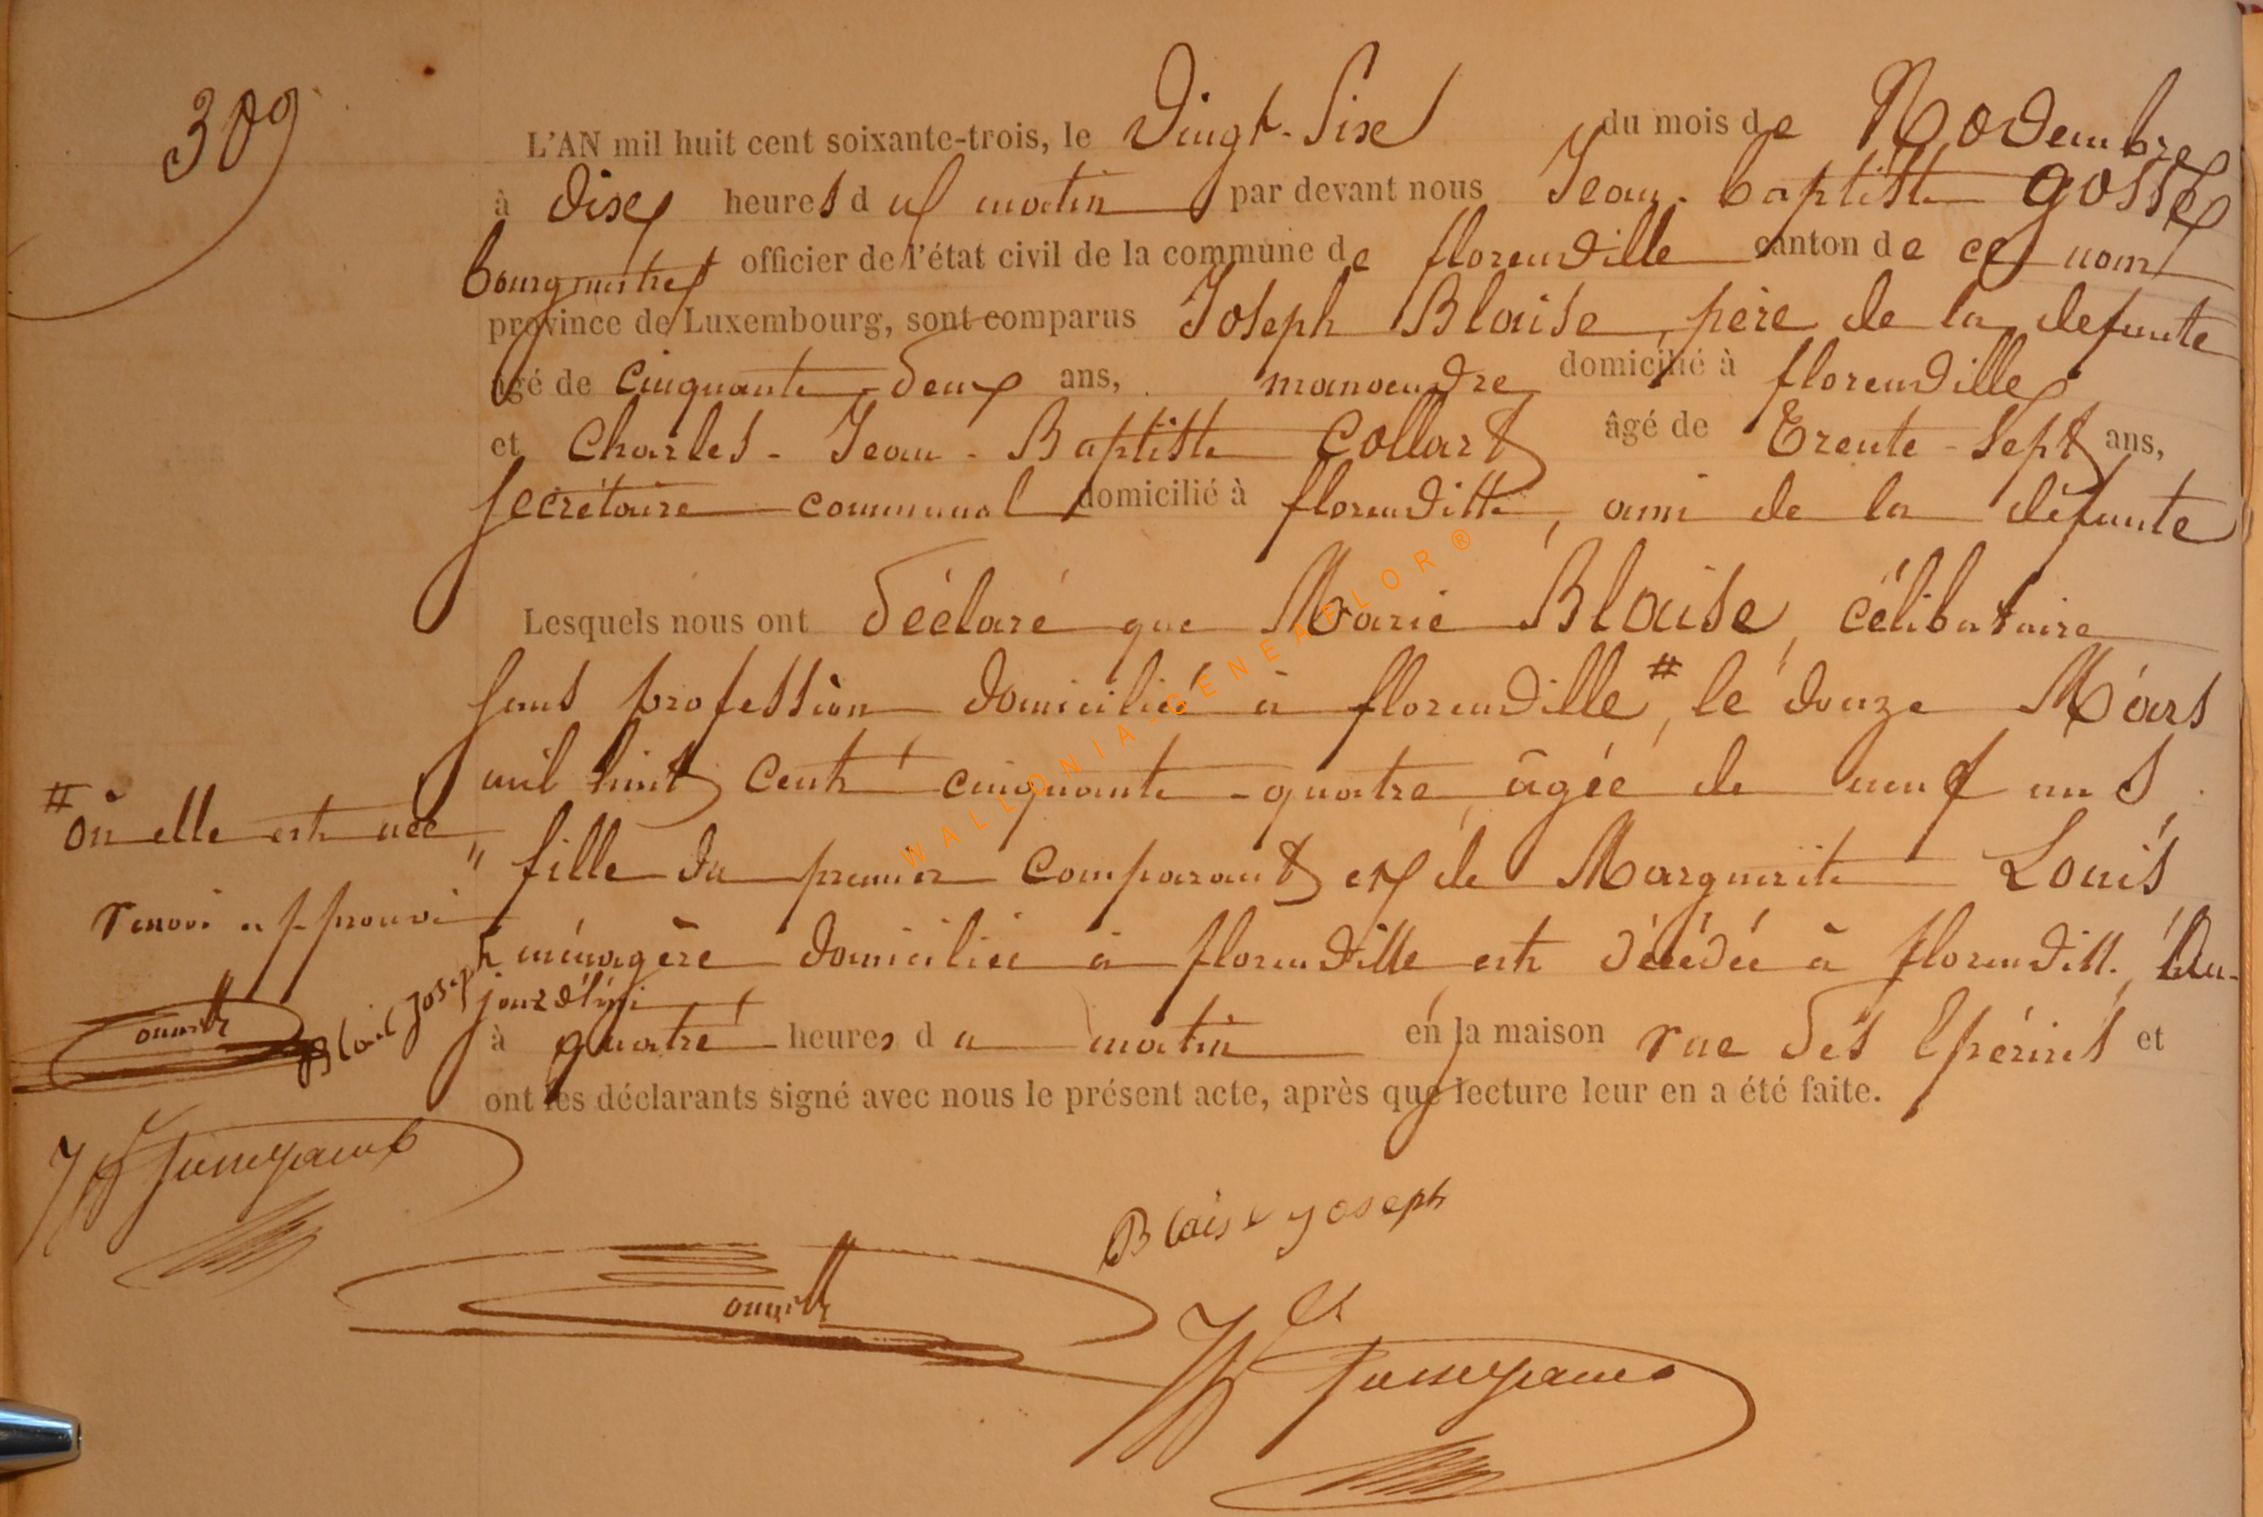 309
L'AN mil huit cent soixante-trois, le Vingt-Six du mois de Novembre
à dix heures du matin par devant nous Jean-baptiste gosse
bourgmestre officier de l'état civil de la commune de florenville canton de ce nom
province de Luxembourg, sont comparus Joseph Blaise, père de la defunte
âgé de cinquante-deux ans, manoeuvre domicilié à florenville
et Charles-Jean-Baptiste Collart âgé de Trente-Sept ans,
secrétaire communal domicilié à florenville, ami de la défunte
Lesquels nous ont déclaré que Marie Blaise, célibataire
sans profession domiciliée à florenville #, le douze Mars
mil huit cent cinquante-quatre, âgée de neuf ans,
fille du premier comparant et de Marguerite Louis
ménagère domiciliée à florenville est décédée à florenvill. Au-
jourd'hui
à quatre heures du matin en la maison rue des Epérires et
ont les déclarants signé avec nous le présent acte, après que lecture leur en a été faite.
# où elle est née "
renvoi approuvé
Blaise Joseph
Blaise Joseph
WALLONIA-GENEAFLOR®